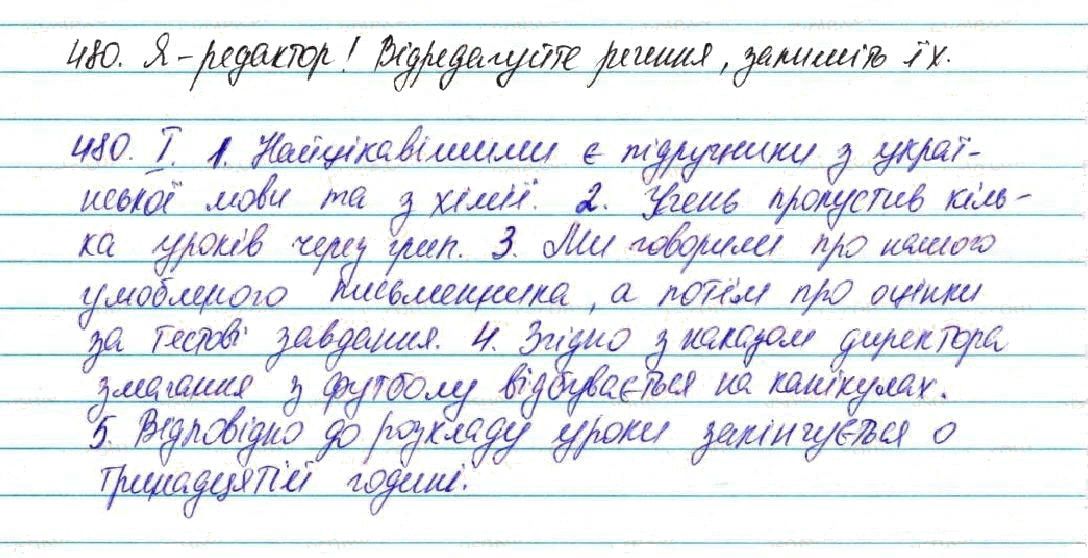 480. Я - редактор! Відредагуйте речення, запишіть їх.
480. І. 1. Найцікавішими є підручники з україн-
ської мови та з хімії. 2. Учень пропустив кіль-
ка уроків через грип. 3. Ми говорили про нашого
улюбленого письменника, а потім про оцінки
за тестові завдання. 4. Згідно з наказом директора
змагання з футболу відбувається на канікулах.
5. Відповідно до розкладу уроки закінчується о
тринадцятій годині.